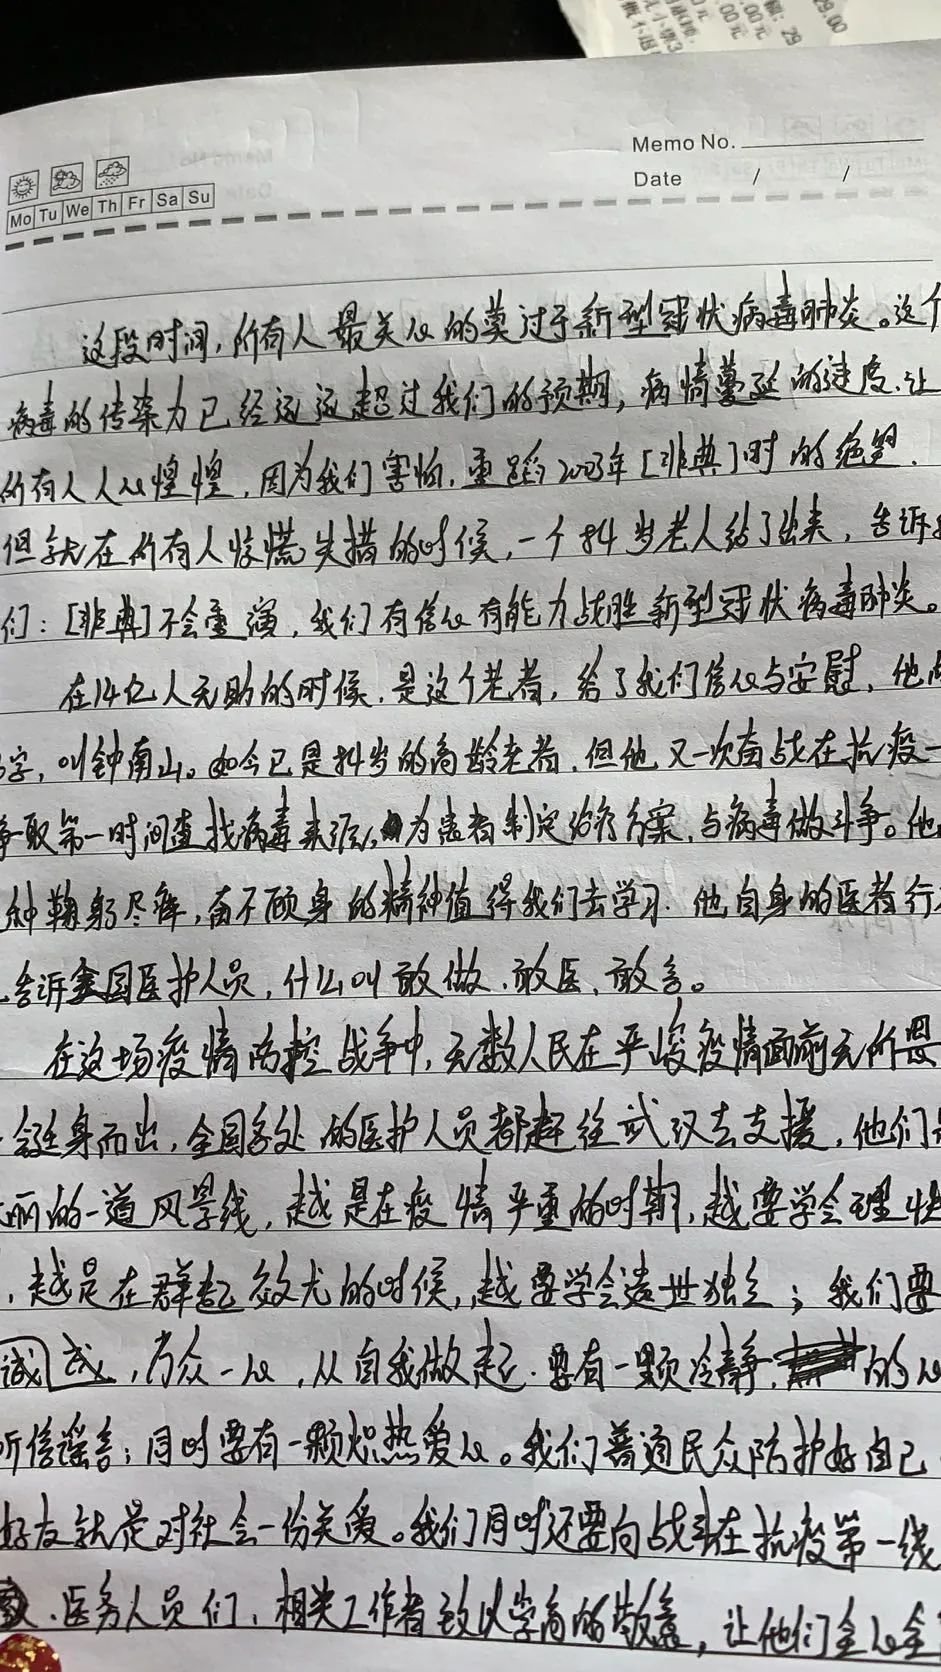 29.00
29
.00元
.00元
Memo No.
Date / /
Mo Tu We Th Fr Sa Su
这段时间,所有人最关心的莫过于新型冠状病毒肺炎。这个
病毒的传染力已经远远超过我们的预期,病情蔓延的速度.让
所有人人心惶惶,因为我们害怕,重蹈2003年[非典]时的绝望.
但就在所有人惊慌失措的时候,一个84岁老人站了出来,告诉
们:[非典]不会重演,我们有信心有能力战胜新型冠状病毒肺炎。
在14亿人无助的时候.是这个老者,给了我们信心与安慰,他
字,叫钟南山。如今已是84岁的高龄老者.但他又一次奋战在抗疫一
争取第一时间查找病毒来源,为患者制定治疗方案,与病毒做斗争。他
种鞠躬尽瘁,奋不顾身的精神值得我们去学习.他自身的医者行
告诉全国医护人员,什么叫敢做.敢医.敢言。
在这场疫情防控战争中,无数人民在严峻疫情面前无所畏
挺身而出,全国各处的医护人员都赶往武汉去支援,他们
丽的一道风景线,越是在疫情严重的时期,越要学会理性
,越是在群起效尤的时候,越要学会遗世独立;我们要
诚,万众一心,从自我做起.要有一颗冷静的心
听信谣言;同时要有一颗炽热爱心。我们普通民众防护好自己
好友就是对社会一份关爱。我们同时还要向战斗在抗疫第一线
医务人员们,相关工作者致以学高的敬意,让他们全心全